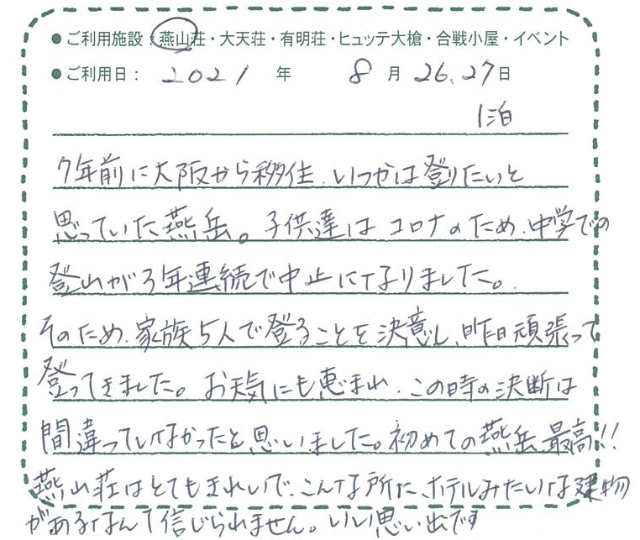 ● ご利用施設：燕山荘・大天荘・有明荘・ヒュッテ大槍・合戦小屋・イベント
● ご利用日： 2021 年 8 月 26.27 日
1泊
7年前に大阪から移住、いつかは登りたいと
思っていた燕岳。子供達はコロナのため、中学での
登山が3年連続で中止になりました。
そのため、家族5人で登ることを決意し、昨日頑張って
登ってきました。お天気にも恵まれ、この時の決断は
間違っていなかったと思いました。初めての燕岳、最高!!
燕山荘はとてもきれいで、こんな所に、ホテルみたいな建物
があるなんて信じられません。いい思い出です